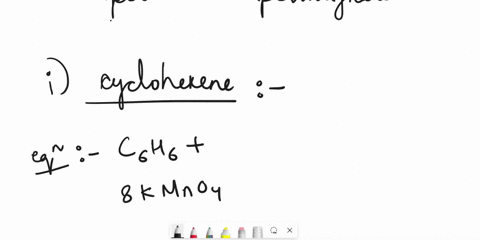 i) cyclohexene :-
eqⁿ :- C₆H₆ +
8KMnO₄